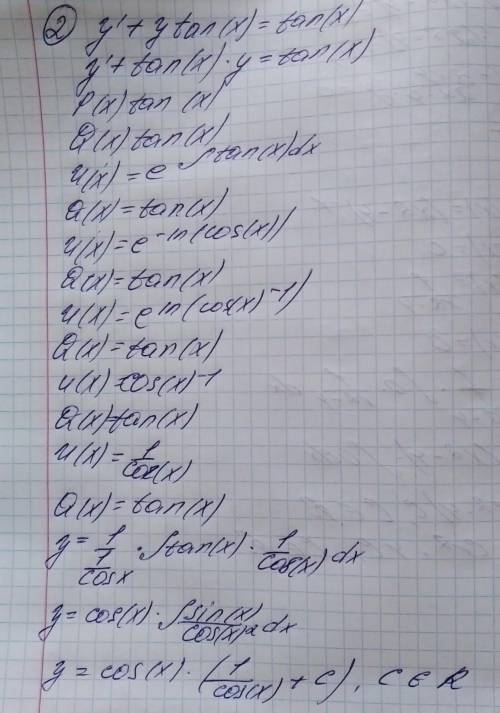 ② y' + y tan(x) = tan(x)
y' + tan(x) · y = tan(x)
P(x) tan(x)
Q(x) tan(x)
u(x) = e ∫tan(x)dx
Q(x) = tan(x)
u(x) = e^-ln(cos(x))
Q(x) = tan(x)
u(x) = e^ln(cos(x)^-1)
Q(x) = tan(x)
u(x) = cos(x)^-1
Q(x) = tan(x)
u(x) = 1/cos(x)
Q(x) = tan(x)
y = 1/(1/cosx) · ∫tan(x) · 1/cos(x) dx
y = cos(x) · ∫sin(x)/cos(x)² dx
y = cos(x) · (1/cos(x) + C), C ∈ R